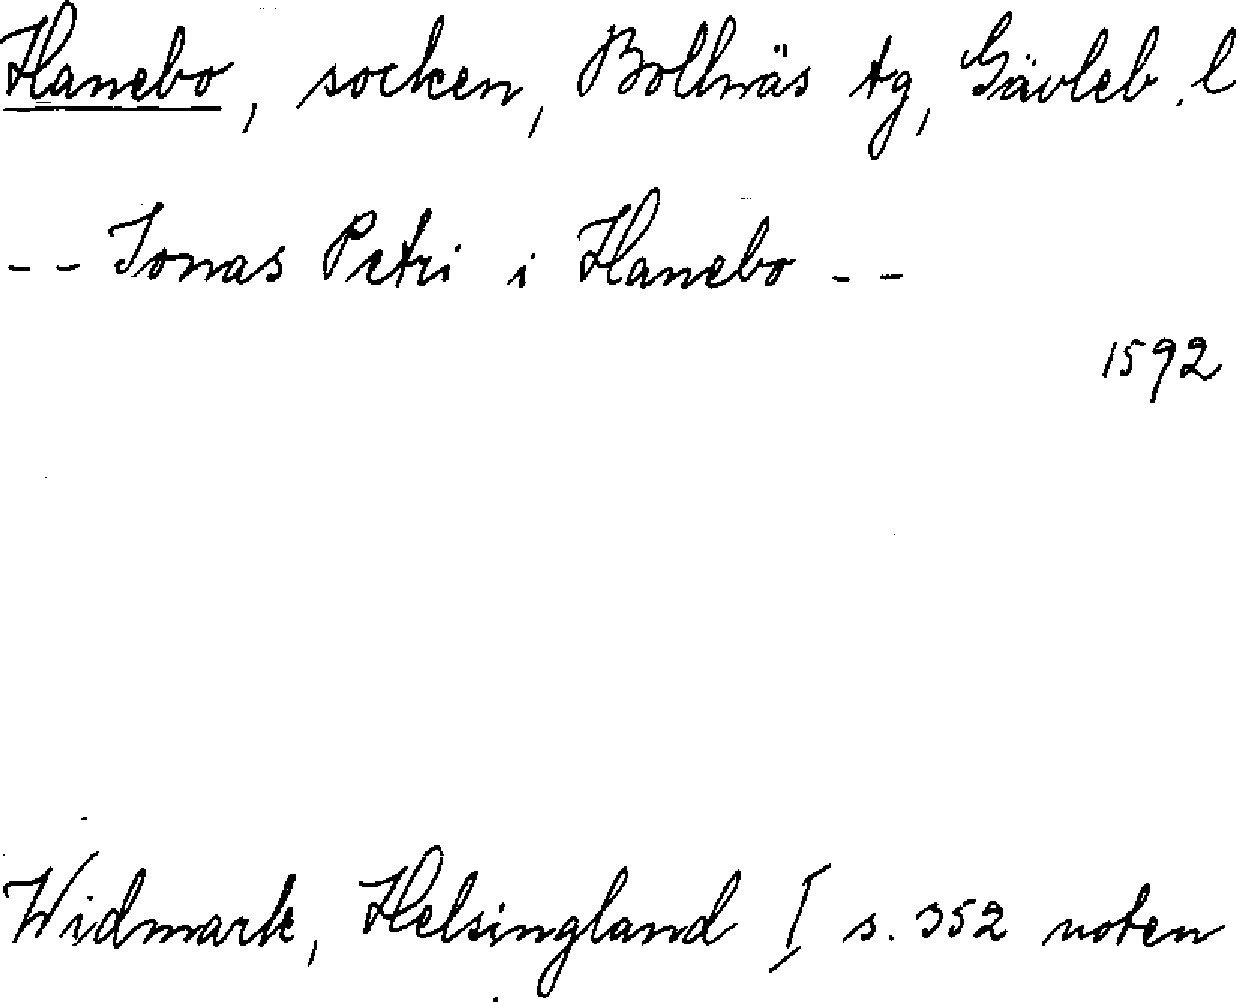 Hanebo, socken, Bollnäs tg, Gävleb. l
-- Jonas Petri i Hanebo --
1592
Widmark, Helsingland I s. 352 noten